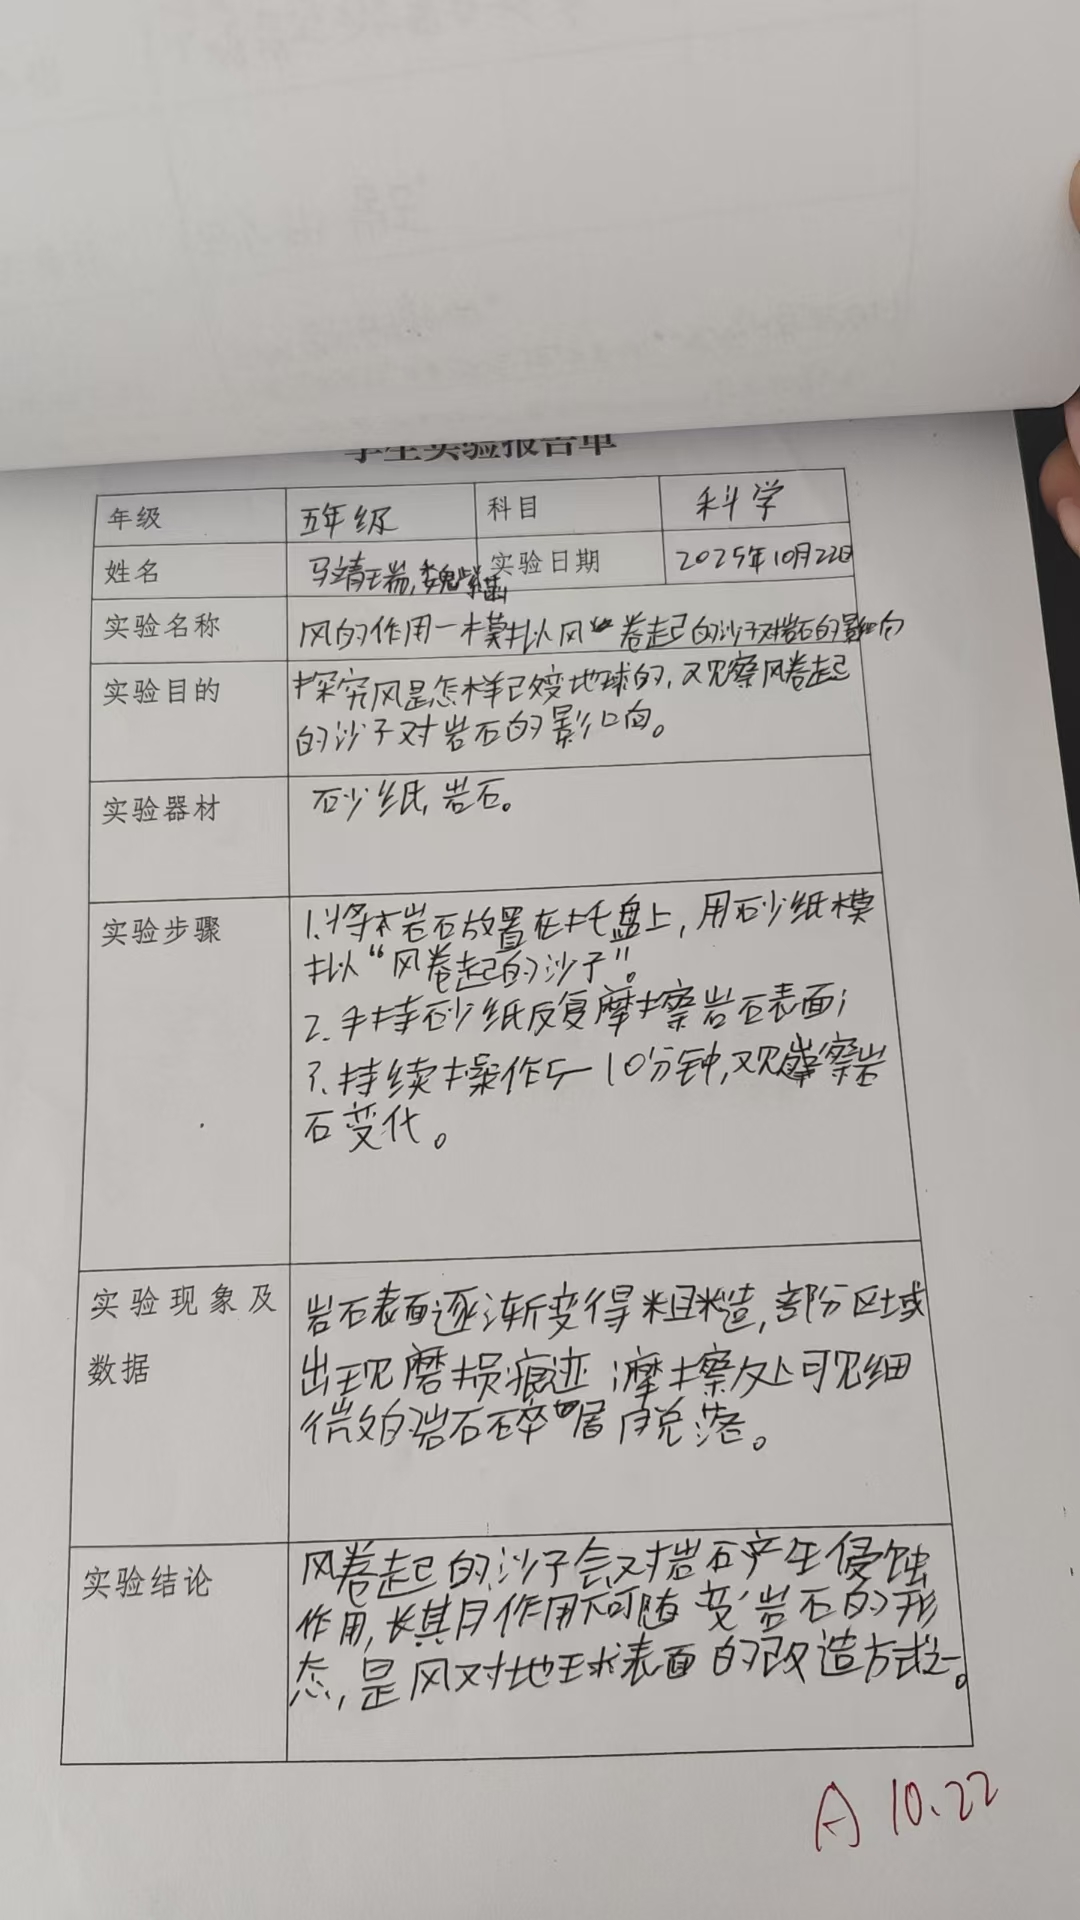 学生实验报告单
年级 五年级 科目 科学
姓名 马靖瑞,魏紫 实验日期 2025年10月22日
实验名称 风的作用一模拟风 卷起的沙子对岩石的影响
实验目的 探究风是怎样改变地球的,观察风卷起
的沙子对岩石的影响。
实验器材 砂纸,岩石。
实验步骤 1.将岩石放置在托盘上,用砂纸模
拟“风卷起的沙子”。
2.手持砂纸反复摩擦岩石表面;
3.持续操作5-10分钟,观察岩
石变化。
实验现象及 岩石表面逐渐变得粗糙,部分区域
数据 出现磨损痕迹;摩擦处可见细
微的岩石碎屑脱落。
实验结论 风卷起的沙子会对岩石产生侵蚀
作用,长期作用 变岩石的形
态,是风对地球表面的改造方式之一。
A 10.22